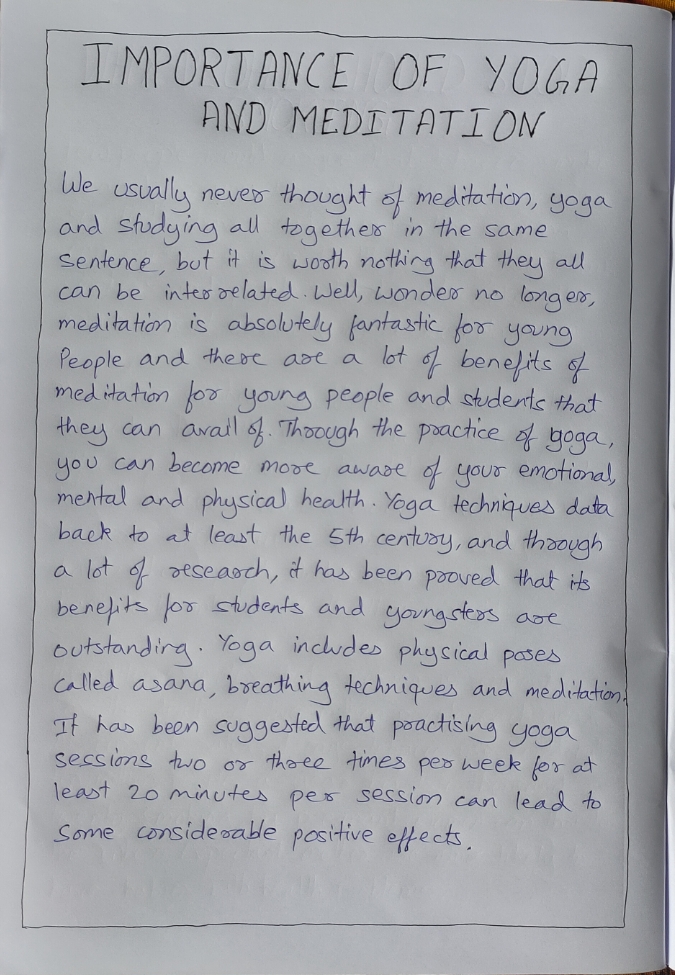 IMPORTANCE OF YOGA
AND MEDITATION
We usually never thought of meditation, yoga
and studying all together in the same
sentence, but it is worth nothing that they all
can be interrelated. Well, wonder no longer,
meditation is absolutely fantastic for young
People and there are a lot of benefits of
meditation for young people and students that
they can avail of. Through the practice of yoga,
you can become more aware of your emotional,
mental and physical health. Yoga techniques data
back to at least the 5th century, and through
a lot of research, it has been proved that its
benefits for students and youngsters are
outstanding. Yoga includes physical poses
called asana, breathing techniques and meditation.
It has been suggested that practising yoga
sessions two or three times per week for at
least 20 minutes per session can lead to
some considerable positive effects.